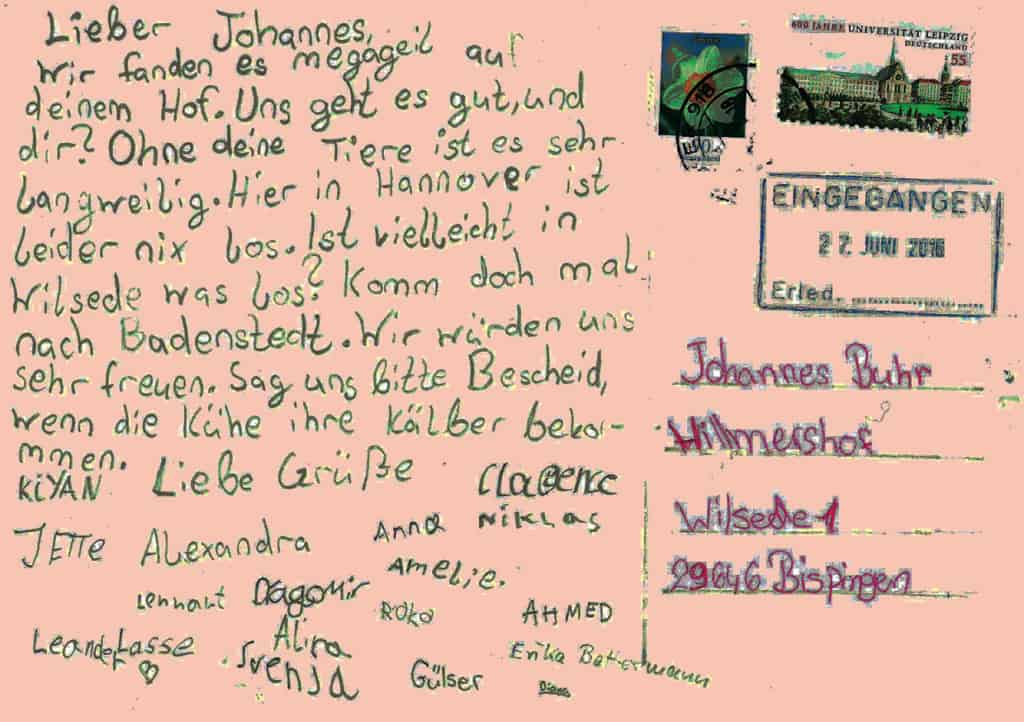 Lieber Johannes,
wir fanden es megageil auf
deinem Hof. Uns geht es gut, und
dir? Ohne deine Tiere ist es sehr
langweilig. Hier in Hannover ist
leider nix los. Ist vielleicht in
Wilsede was los? Komm doch mal
nach Badenstedt. Wir würden uns
sehr freuen. Sag uns bitte Bescheid,
wenn die Kühe ihre Kälber beko-
mmen.
KiYAN Liebe Grüße Clarence
JETTe Alexandra Anna NiKLAS
Amelie.
Lennart Dagomir Roko AHMED
Leander Lasse Alina
Svenja Gülser Erika Battermann
Diana
600 JAHRE UNIVERSITÄT LEIPZIG
DEUTSCHLAND
55
EINGEGANGEN
22. JUNI 2016
Erled.
Johannes Buhr
Hillmershof
Wilsede 1
29646 Bispingen